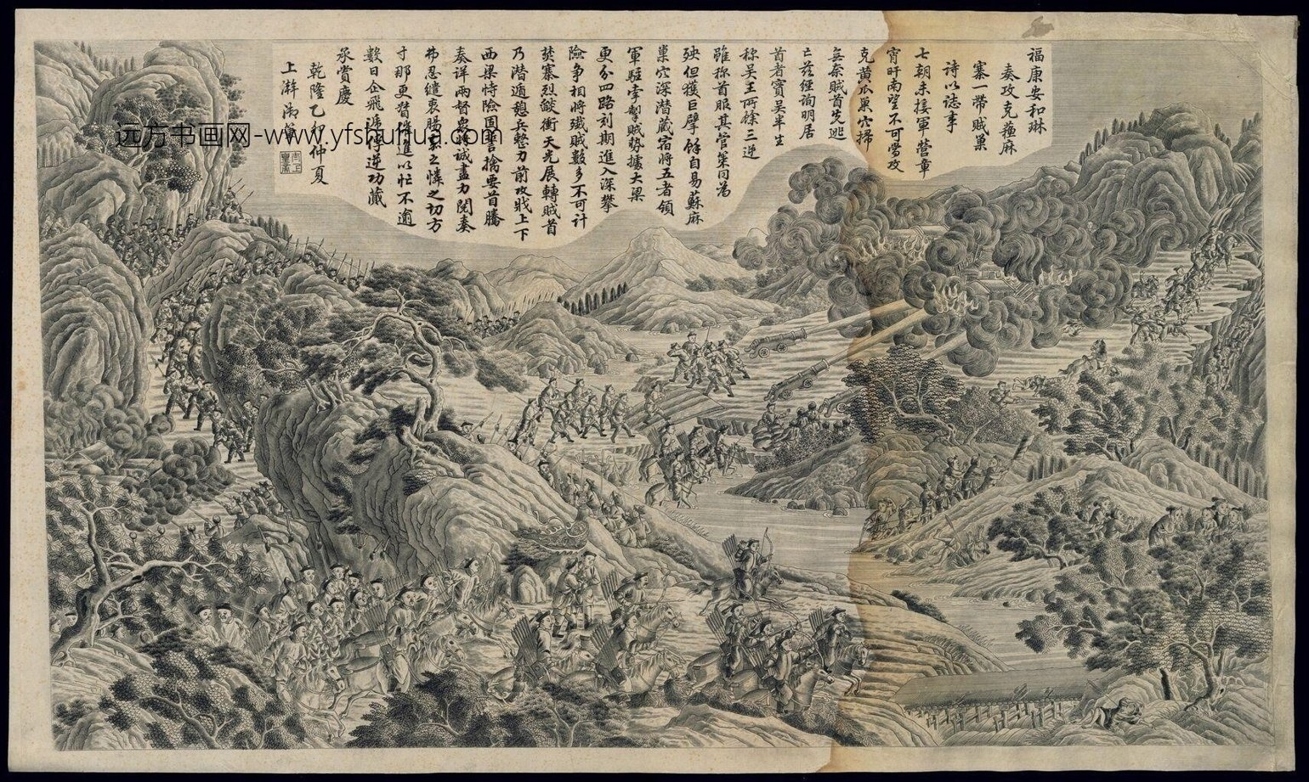 福康安和琳
奏攻克蘇麻
寨一帶賊巢
詩以誌事
七朝未接軍營章
宵旰南望不可嘗攻
克黃瓜巢穴掃
無奈賊首先逃
亡茲經詢明居
首者實吳半生
稱吴王所餘三逆
雖称首賊其官第同為
殃但獲巨擘餘自易蘇麻
巢穴深潜藏宿將五者領
軍駐掣賊勢據大梁
更分四路刻期進入深攀
險争相將殱賊數多不可計
焚寨烈燄衝天光展轉賊首
乃潜適憩兵整力前攻戕上下
西梁恃險圍擒要首騰
奏詳兩督誠盡力閱奏
弗忍勝之憐之切方
寸那更督進以忙不逾
數日企飛逆功蕆
承賞慶
乾隆乙卯仲夏
上澣御筆
远方书画网-www.yfshuhua.com